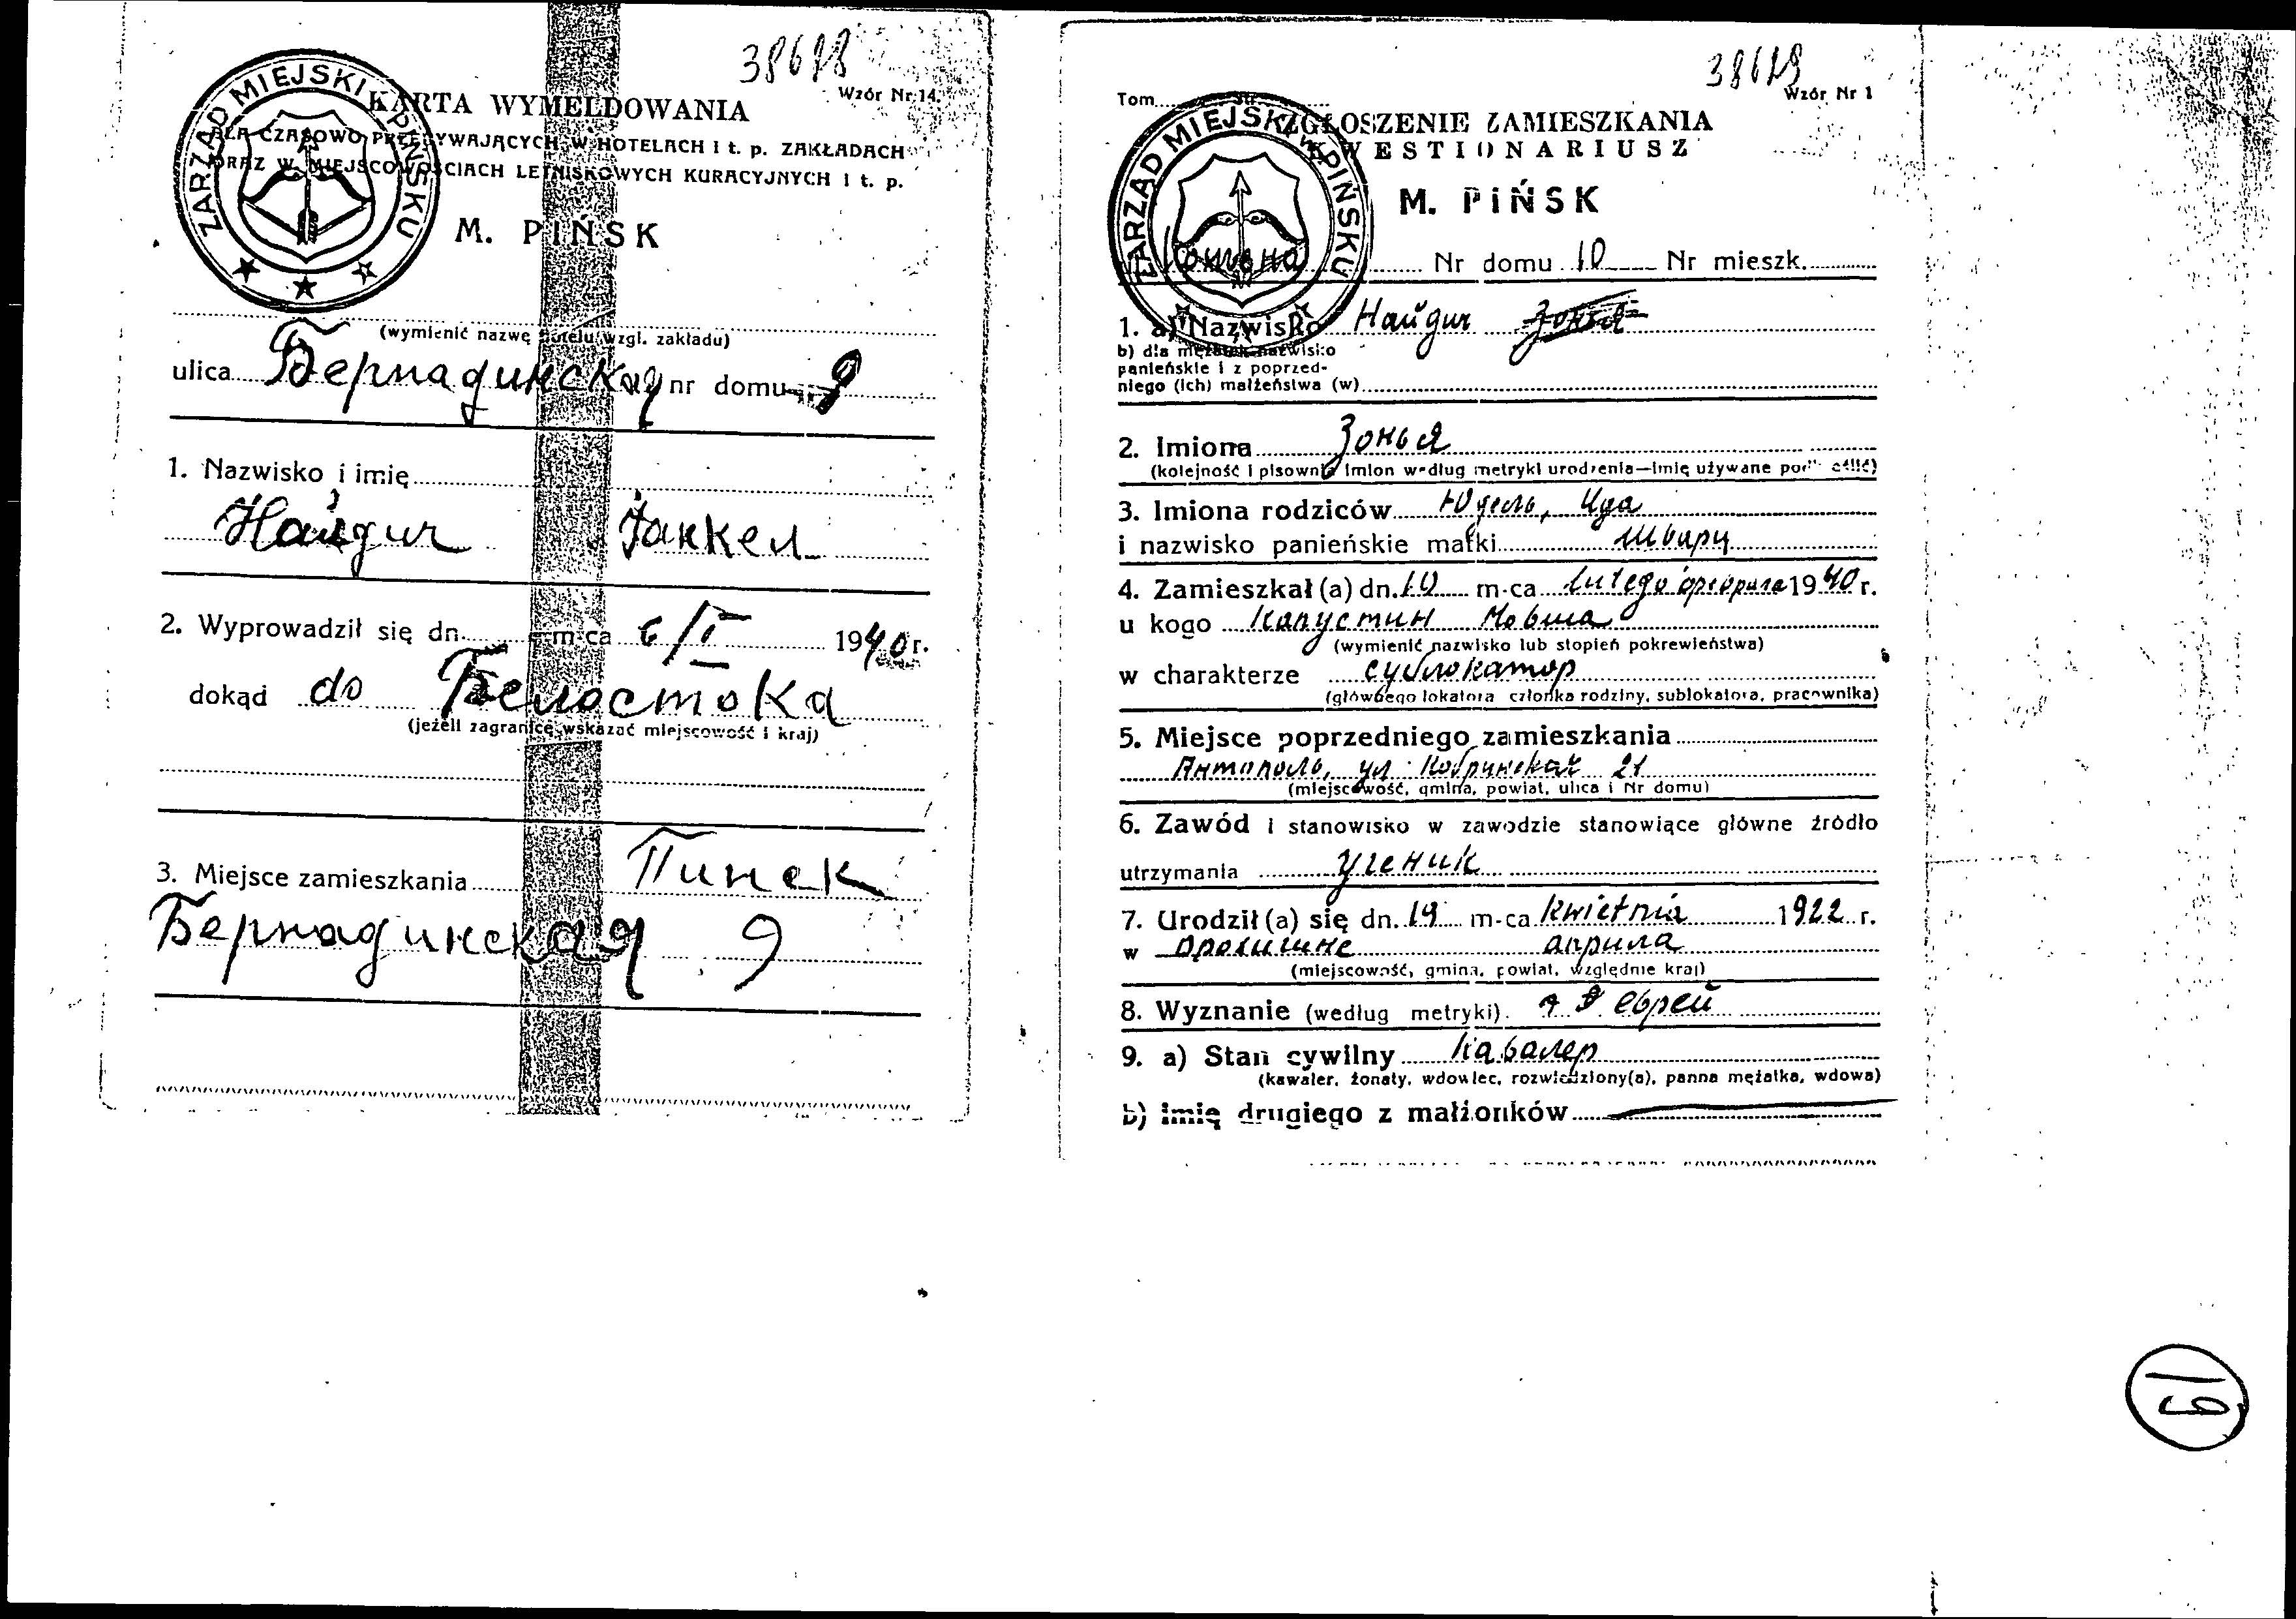 Wzór Nr 14
ZARZĄD MIEJSKI W PIŃSKU
KARTA WYMELDOWANIA
DLA CZASOWO PRZEBYWAJĄCYCH W HOTELACH I t. p. ZAKŁADACH
ORAZ W MIEJSCOWOŚCIACH LETNISKOWYCH KURACYJNYCH I t. p.
M. PIŃSK
(wymienić nazwę hotelu wzgl. zakładu)
ulica Бернадинская nr domu 9
1. Nazwisko i imię
Найдич Янкел
2. Wyprowadził się dn. m-ca 6/I 1940 r.
dokąd do Белостока
(jeżeli zagranicę wskazać miejscowość i kraj)
3. Miejsce zamieszkania Пинск
Бернадинская 9
Wzór Nr 1
Tom
ZARZĄD MIEJSKI W PIŃSKU
ZGŁOSZENIE ZAMIESZKANIA
KWESTIONARIUSZ
M. PIŃSK
Nr domu 10 Nr mieszk.
1. a) Nazwisko Найдич
b) dla mężatek nazwisko
panieńskie i z poprzed-
niego (ich) małżeństwa (w)
2. Imiona Зонья
(kolejność i pisownia imion według metryki urodzenia—imię używane
3. Imiona rodziców Юдель, Ида
i nazwisko panieńskie matki Шварц
4. Zamieszkał (a) dn. 10 m-ca lutego 1940 r.
u kogo Капустин Мовша
(wymienić nazwisko lub stopień pokrewieństwa)
w charakterze сублокатор
(głównego lokatora członka rodziny, sublokatora, pracownika)
5. Miejsce poprzedniego zamieszkania
Антополь, ул Кобринская 21
(miejscowość, gmina, powiat, ulica i Nr domu)
6. Zawód i stanowisko w zawodzie stanowiące główne źródło
utrzymania ученик
7. Urodził (a) się dn. 19 m-ca kwietnia 1922 r.
w априла
(miejscowość, gmina, powiat, względnie kraj)
8. Wyznanie (według metryki). еврей
9. a) Stan cywilny кавалер
(kawaler, żonaty, wdowiec, rozwiedziony(a), panna mężatka, wdowa)
b) imię drugiego z małżonków
19